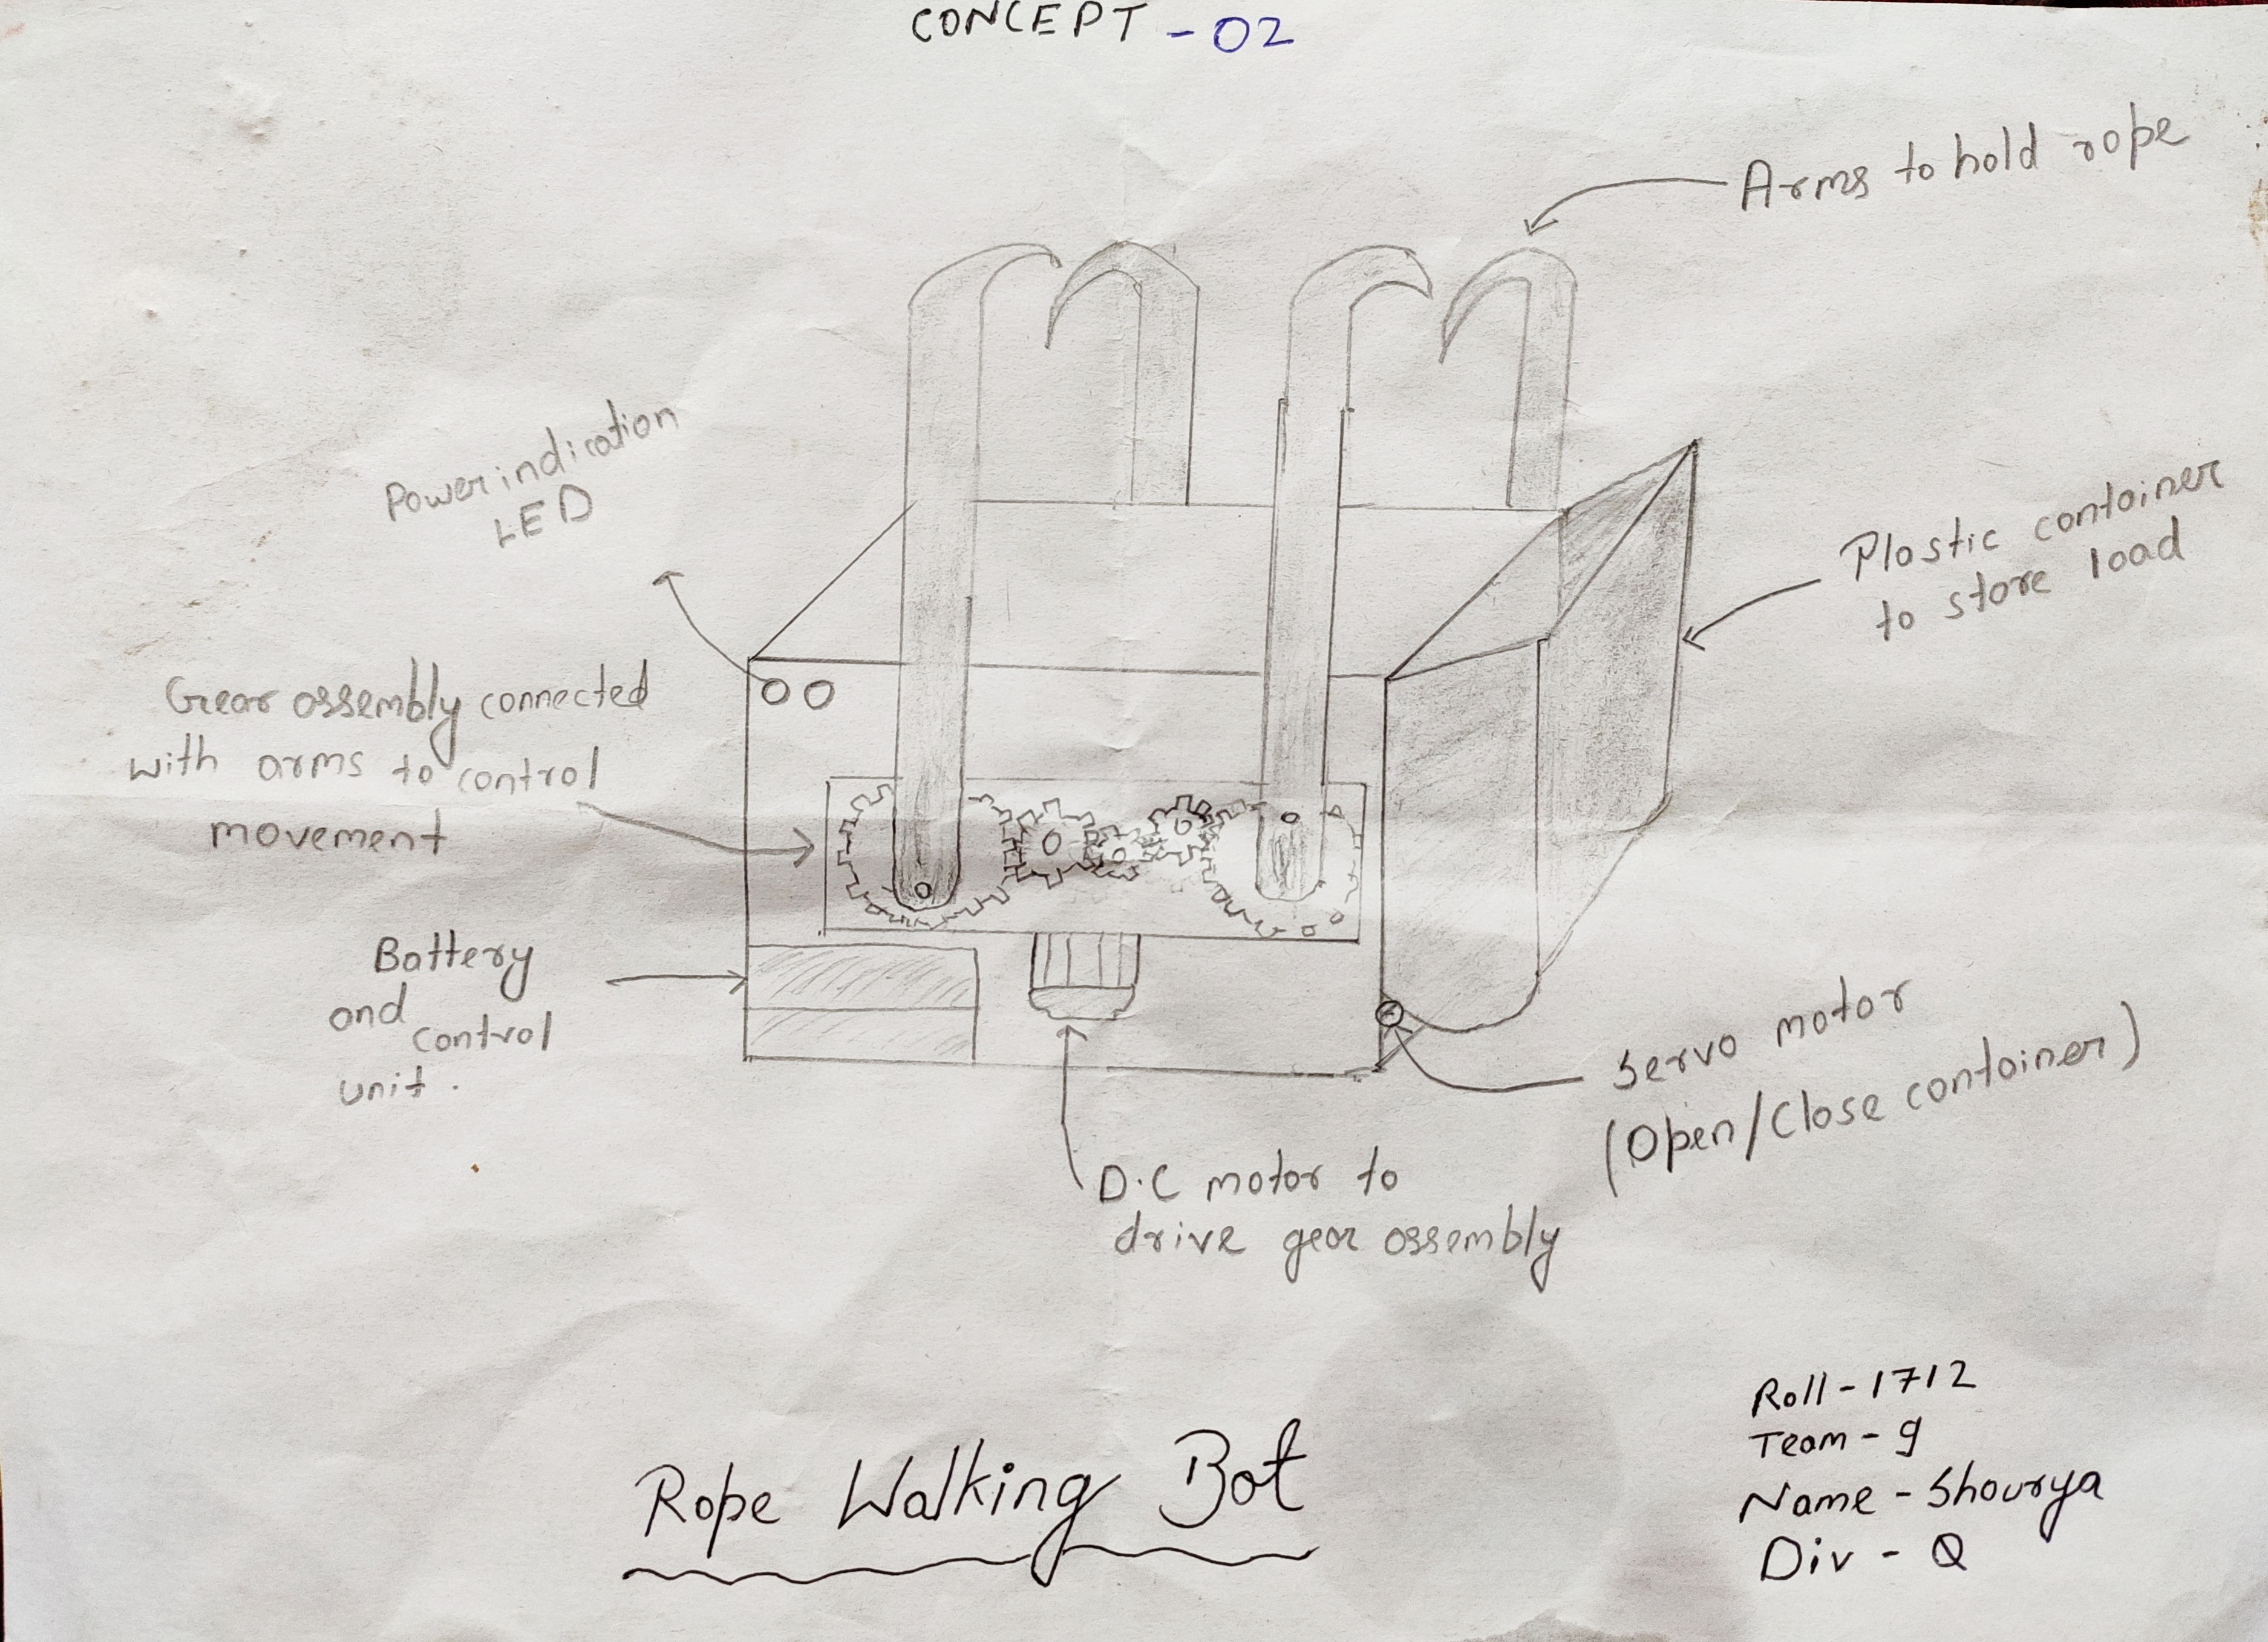 CONCEPT - 02
Arms to hold rope
Power indication
LED
Plastic container
to store load
Gear assembly connected
with arms to control
movement
Battery
and
control
unit.
Servo motor
(Open/Close container)
D.C motor to
drive gear assembly
Rope Walking Bot
Roll - 1712
Team - 9
Name - Shourya
Div - Q